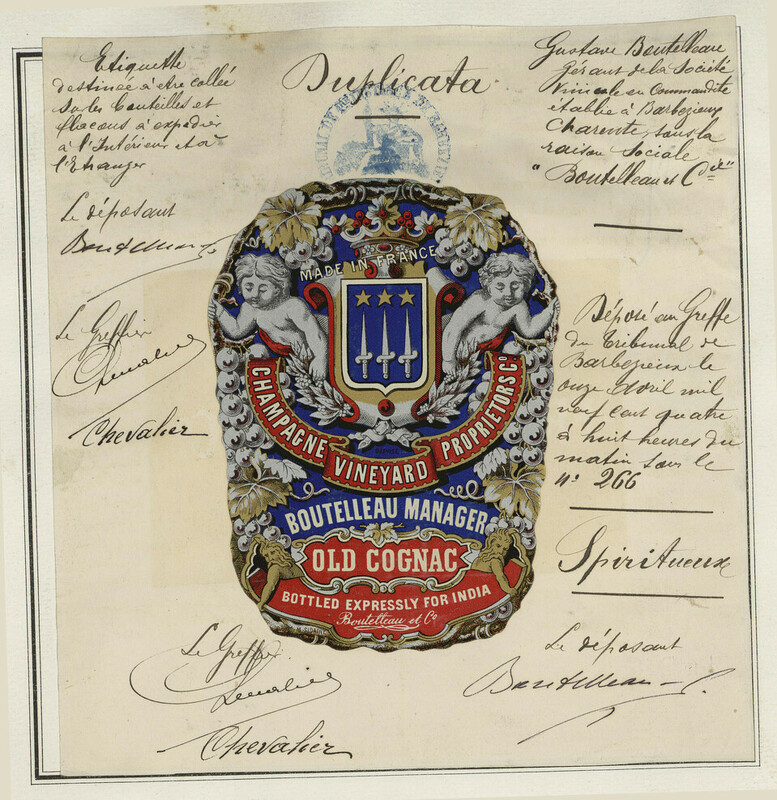 Etiquette
destinée à être collée
sur les bouteilles et
flacons à expédier
à l'Intérieur et à
l'Etranger
Le déposant
Boutelleau
Le Greffier
Chevalier
Duplicata
Gustave Boutelleau
Gérant de la Société
Vinicole en Commandite
établie à Barbezieux
Charente, sous la
raison Sociale
"Boutelleau et Cie"
MADE IN FRANCE
CHAMPAGNE VINEYARD PROPRIETORS Co
DÉPOSÉ
BOUTELLEAU MANAGER
OLD COGNAC
BOTTLED EXPRESSLY FOR INDIA
Boutelleau et Co
Déposé au Greffe
du Tribunal de
Barbezieux le
onze Avril mil
neuf cent quatre
à huit heures du
matin sous le
No 266
Spiritueux
Le Greffier
Chevalier
Le déposant
Boutelleau